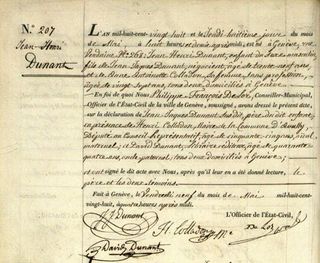 No. 207
Jean-Henri
Dunant
L'AN mil-huit-cent vingt-huit et le Jeudi huitième jour du mois
de Mai, à huit heures et demie après midi, est né à Genève, rue
Verdaine No. 268, Jean-Henri Dunant, enfant du sexe masculin,
fils de Jean-Jaques Dunant, négociant, âgé de trente-neuf ans,
et de Anne Antoinette Colladon, sa femme, sans profession,
âgée de vingt-sept ans, tous deux domiciliés à Genève.
— En foi de quoi Nous Philippe François DeLor, Conseiller-Municipal,
Officier de l'Etat-Civil de la ville de Genève, soussigné, avons dressé le présent acte,
sur la déclaration de Jean-Jaques Dunant susdit, père du dit enfant,
en présence de Henri Colladon, Maire de la commune d'Avully,
Député au Conseil Représentatif, âgé de cinquante-cinq ans, aïeul
maternel; et David Dunant, libraire éditeur, âgé de quarante-
quatre ans, oncle paternel; tous deux domiciliés à Genève;
ont signé le dit acte avec Nous, après qu'il leur en a été donné lecture, le
père et les deux témoins.
Fait à Genève, le Vendredi neuf du mois de Mai mil-huit-cent-
vingt-huit, à quatre heures après midi.
L'Officier de l'Etat-Civil,
JJ Dunant
H. Colladon
David Dunant